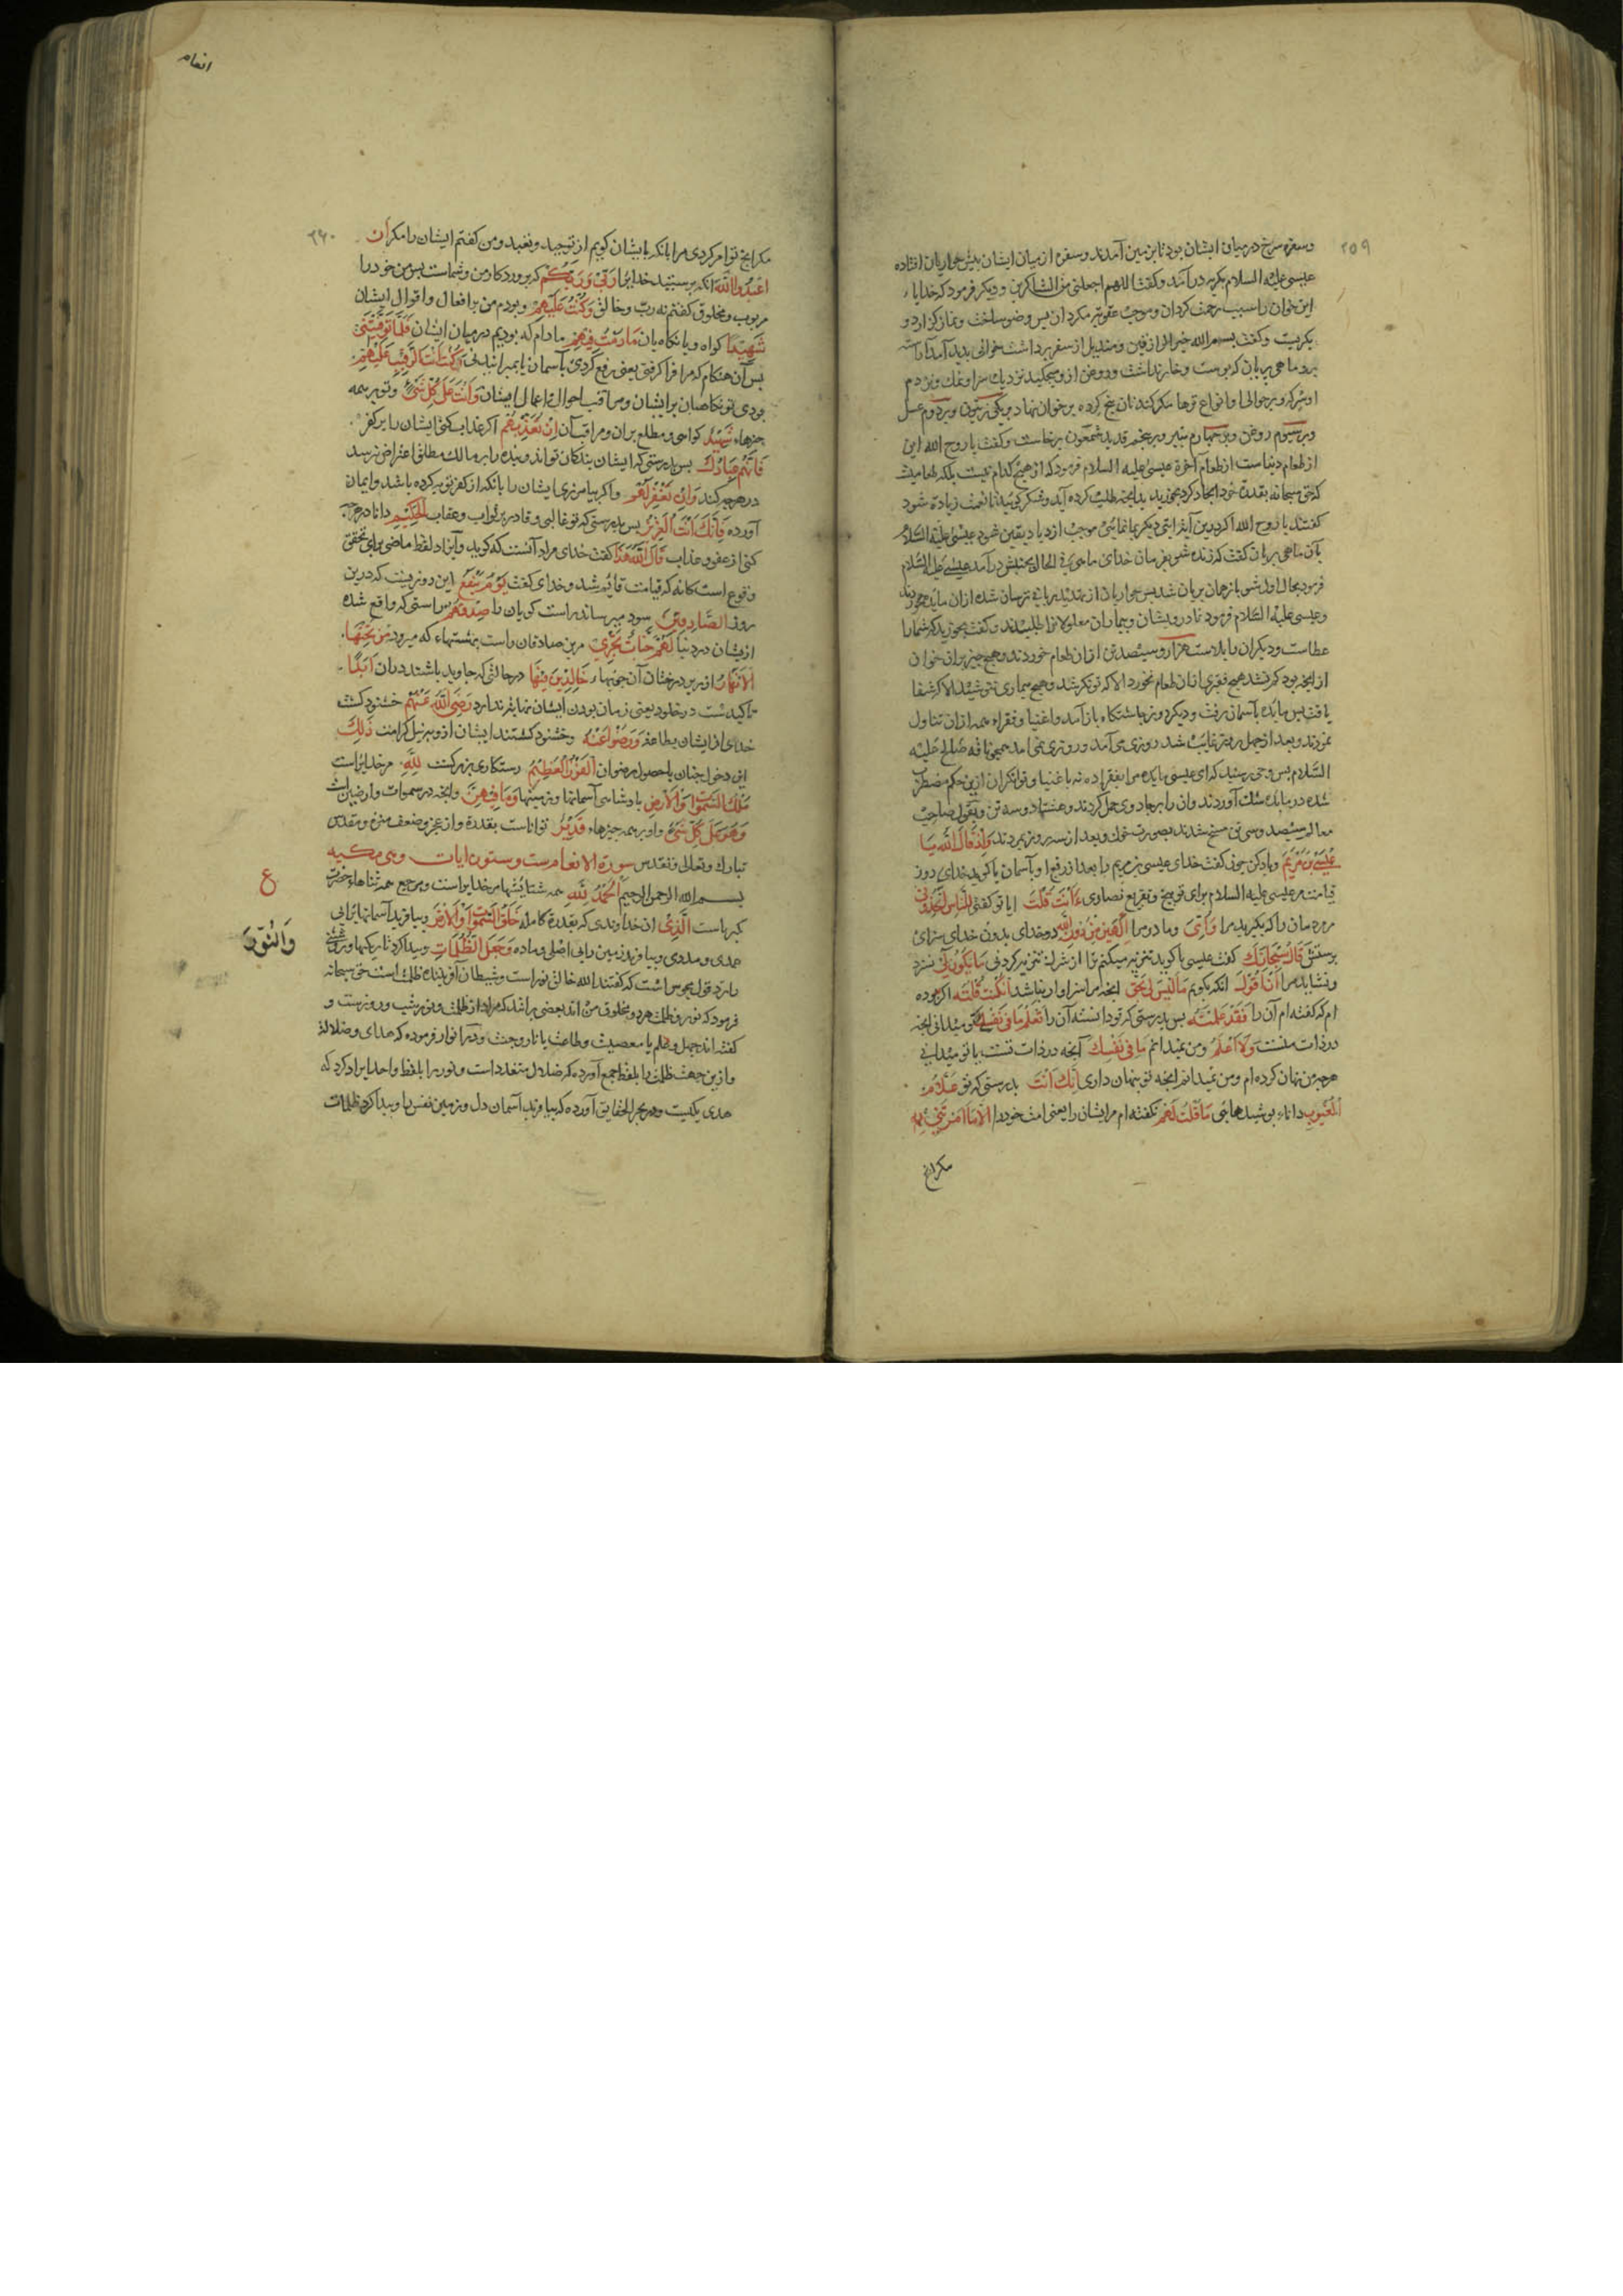 ۲۵۹
وسفره سرخ در میان ایشان بود تا بزمین آمدند وسفره از میان ایشان پیش حواریان افتاده
عیسی علیه السلام بکریه درآمد وکفت اللهم اجعلنی من الشاکرین ودیکر فرمود که خدایا
این خوان را سبب رحمت کردان وموجب عقوبة مکردان پس وضو ساخت ونماز کزارد و
بکریست وکفت بسم الله خیر الرازقین ومندیل از سفره برداشت خوانی بدید آمد آراسته
برو ماهی بریان که پوست وخار نداشت وروغن ازو میچکید نزدیك سر او نمك ونزد دم
او سرکه وبر حوالی او انواع ترها مکر کندنا ونان پنج کرده بر خوان نهاده بر یکی زیتون وبر دوم عسل
وبر سیوم روغن وبر چهارم پنیر وبر پنجم قدید شمعون برخاست وکفت یا روح الله این
از طعام دنیاست از طعام آخرة عیسی علیه السلام فرمود که از هیچ کدام نیست بلکه طعامیست
که حق سبحانه بقدرة خود ایجاد کرد بخورید ایچه طلب کرده آید وشکر کویید تا نعمت زیاده شود
کفتند یا روح الله اکر درین آیة ایتی دیکر بما نمایی موجب ازدیاد یقین شود عیسی علیه السلام
بآن ماهی بریان کفت که زنده شو بفرمان خدای ماهی فی الحال بجنبش درآمد عیسی علیه السلام
فرمود بحال اول شو باز همان بریان شد پس حواریان ترسان شده ازان مایده نخوردند
وعیسی علیه السلام فرمود تا درویشان وبیماران ومعلولانرا طلبیدند وکفت بخورید که شما را
عطاست ودیکران را بلاست هزار وسیصد تن ازان طعام خوردند وهیچ چیز بران خوان
از انچه بود کم نشد هیچ فقیری ازان طعام نخورد الا که توانکر شد وهیچ بیماری الا که شفا
یافت پس مایده بآسمان رفت ودیکر روز چاشتکاه باز آمد واغنیا وفقراء همه ازان تناول
نمودند وبعد از چهل روز غایب شد روزی می آمد وروزی نمی آمد همچو ناقه صالح علیه
السلام پس وحی رسید که ای عیسی مایده مرا بفقرا ده نه باغنیا وتوانکران ازین حکم مضطرب
شده در مایده شك آوردند وان را بر جادوی حمل کردند وهشتاد وسه تن وبقول صاحب
معالم سیصد وسی تن مسخ شدند بصورت خوك وبعد از سه روز بمردند وَاِذْ قَالَ اللهُ یَا
عِیسَی بْنَ مَرْیَمَ ویاد کن چون کفت خدای عیسی بن مریم را بعد از رفع او بآسمان یا کوید خدای روز
قیامت مر عیسی علیه السلام برای توبیخ وتقریع نصاری ءَاَنْتَ قُلْتَ ایا تو کفتی لِلنَّاسِ اتَّخِذُونِی
مردمان را که بکیرید مرا وَاُمِّیَ ومادر مرا اِلٰهَیْنِ مِنْ دُونِ اللهِ دو خدای بدون خدای سزای
پرستش قَالَ سُبْحَانَكَ کفت عیسی پاکا تنزیه میکنم ترا از شرك تنزیه کردنی مَا یَکُونُ لِی نسزد
ونشاید مرا اَنْ اَقُولَ انکه بکویم مَا لَیْسَ لِی بِحَقٍّ ایچه مرا سزاوار نباشد اِنْ کُنْتُ قُلْتُهُ اکر بوده
ام که کفته ام آن را فَقَدْ عَلِمْتَهُ پس بدرستی که تو دانسته آن را تَعْلَمُ مَا فِی نَفْسِی تو میدانی ایچه
در ذات منست وَلَا اَعْلَمُ ومن نمیدانم مَا فِی نَفْسِكَ آنچه در ذات تست یا تو میدانی
هرچه من نهان کرده ام ومن نمیدانم ایچه تو پنهان داری اِنَّكَ اَنْتَ بدرستی که تو عَلَّامُ
الْغُیُوبِ داناء پوشیدهایی مَا قُلْتُ لَهُمْ نکفته ام مر ایشان را یعنی امت خود را اِلَّا مَا اَمَرْتَنِی بِهِ
مکر ایچ
انعام
۲۶۰
مکر ایچ تو امر کردی مرا بانکه بایشان کویم از توحید وتعبد ومن کفتم ایشان را مکر اَنِ
اعْبُدُوا اللهَ انکه بپرستید خدایرا رَبِّی وَرَبَّکُمْ که پروردکار من وشماست پس من خود را
مربوب ومخلوق کفتم نه رب وخالق وَکُنْتُ عَلَیْهِمْ وبودم من بر افعال واقوال ایشان
شَهِیدًا کواه ویا نکاه بان مَا دُمْتُ فِیهِمْ مادام که بودیم در میان ایشان فَلَمَّا تَوَفَّیْتَنِی
پس آن هنکام که مرا فرا کرفتی یعنی رفع کردی بآسمان یا بمیرانیدنی کُنْتَ اَنْتَ الرَّقِیبَ عَلَیْهِمْ
بودی تو نکاهبان بر ایشان ومراقب احوال واعمال ایشان وَاَنْتَ عَلَی کُلِّ شَیْءٍ وتو بر همه
چیزهاء شَهِیدٌ کواهی ومطلع بران ومراقب آن اِنْ تُعَذِّبْهُمْ اکر عذاب کنی ایشان را بر کفر
فَاِنَّهُمْ عِبَادُكَ پس بدرستی که ایشان بندکان تواند وبنده را بر مالك مطلق اعتراض نرسد
در هرچه کند وَاِنْ تَغْفِرْ لَهُمْ واکر بیامرزی ایشان را بانکه از کفر توبه کرده باشد وایمان
آورده فَاِنَّكَ اَنْتَ الْعَزِیزُ پس بدرستی که تو غالبی وقادر بر ثواب وعقاب الْحَکِیمُ دانا در هرچه
کنی از عفو وعذاب قَالَ اللهُ هٰذَا کفت خدای مراد آنست که کوید وایراد لفظ ماضی برای تحقق
وقوع است کانه که قیامت قایم شد وخدای کفت یَوْمُ یَنْفَعُ این روزیست که درین
روز الصَّادِقِینَ سود میرساند راست کویان را صِدْقُهُمْ راستی که واقع شده
ازیشان در دنیا لَهُمْ جَنَّاتٌ تَجْرِی مرین صادقان راست بهشتهاء که میرود مِنْ تَحْتِهَا
الْاَنْهَارُ از زیر درختان آن جویهاء خَالِدِینَ فِیهَا در حالتی که جاوید باشند دران اَبَدًا
تاکیدست در خلود یعنی زمان بودن ایشان نهایة ندارد رَضِیَ اللهُ عَنْهُمْ خشنود کشت
خدای از ایشان بطاعة وَرَضُوا عَنْهُ وخشنود کشتند ایشان ازو بنیل کرامت ذٰلِكَ
این دخول جنان یا حصول رضوان الْفَوْزُ الْعَظِیمُ رستکاری بزرکست لِلّٰهِ مر خدایراست
مُلْكُ السَّمٰوَاتِ وَالْاَرْضِ پادشاهی آسمانها وزمینها وَمَا فِیهِنَّ وایچه در سموات وارضین است
وَهُوَ عَلَی کُلِّ شَیْءٍ واو بر همه چیزهاء قَدِیرٌ تواناست بقدرة واز عجز وضعف منزه ومقدس
تبارك وتعالی وتقدس سورة الانعام مئة وستون ایات وهی مکیه
بسم الله الرحمن الرحیم اَلْحَمْدُ لِلّٰهِ همه ستایشها مر خدایراست ومرجع همه ثناها حضرت
کبریاست الَّذِی ان خداوندی که بقدرة کامله خَلَقَ السَّمٰوَاتِ وَالْاَرْضَ بیافرید آسمانها برابی
عمدی ومددی وبیافرید زمین را بی اصلی وماده وَجَعَلَ الظُّلُمَاتِ وپیدا کرد تاریکیها وروشنی
ع
وَالنُّورَ
را رد قول مجوس است که کفتند الله خالق نور است وشیطان آفریننده ظلمت است حق سبحانه
فرمود که نور وظلمت هردو مخلوق من اند بعضی برانند که مراد از ظلمت ونور شب وروزست و
کفته اند جهل وعلم یا معصیت وطاعت یا نار وجنت ودر انوار فرموده که هدای وضلالة
وازین جهت ظلمت را بلفظ جمع آورده که ضلال متعدد است ونور را بلفظ واحد ایراد کرد که
هدی یکیست ودر بحر الحقایق آورده که بیافرید آسمان دل وزمین نفس را وپیدا کرد ظلمات